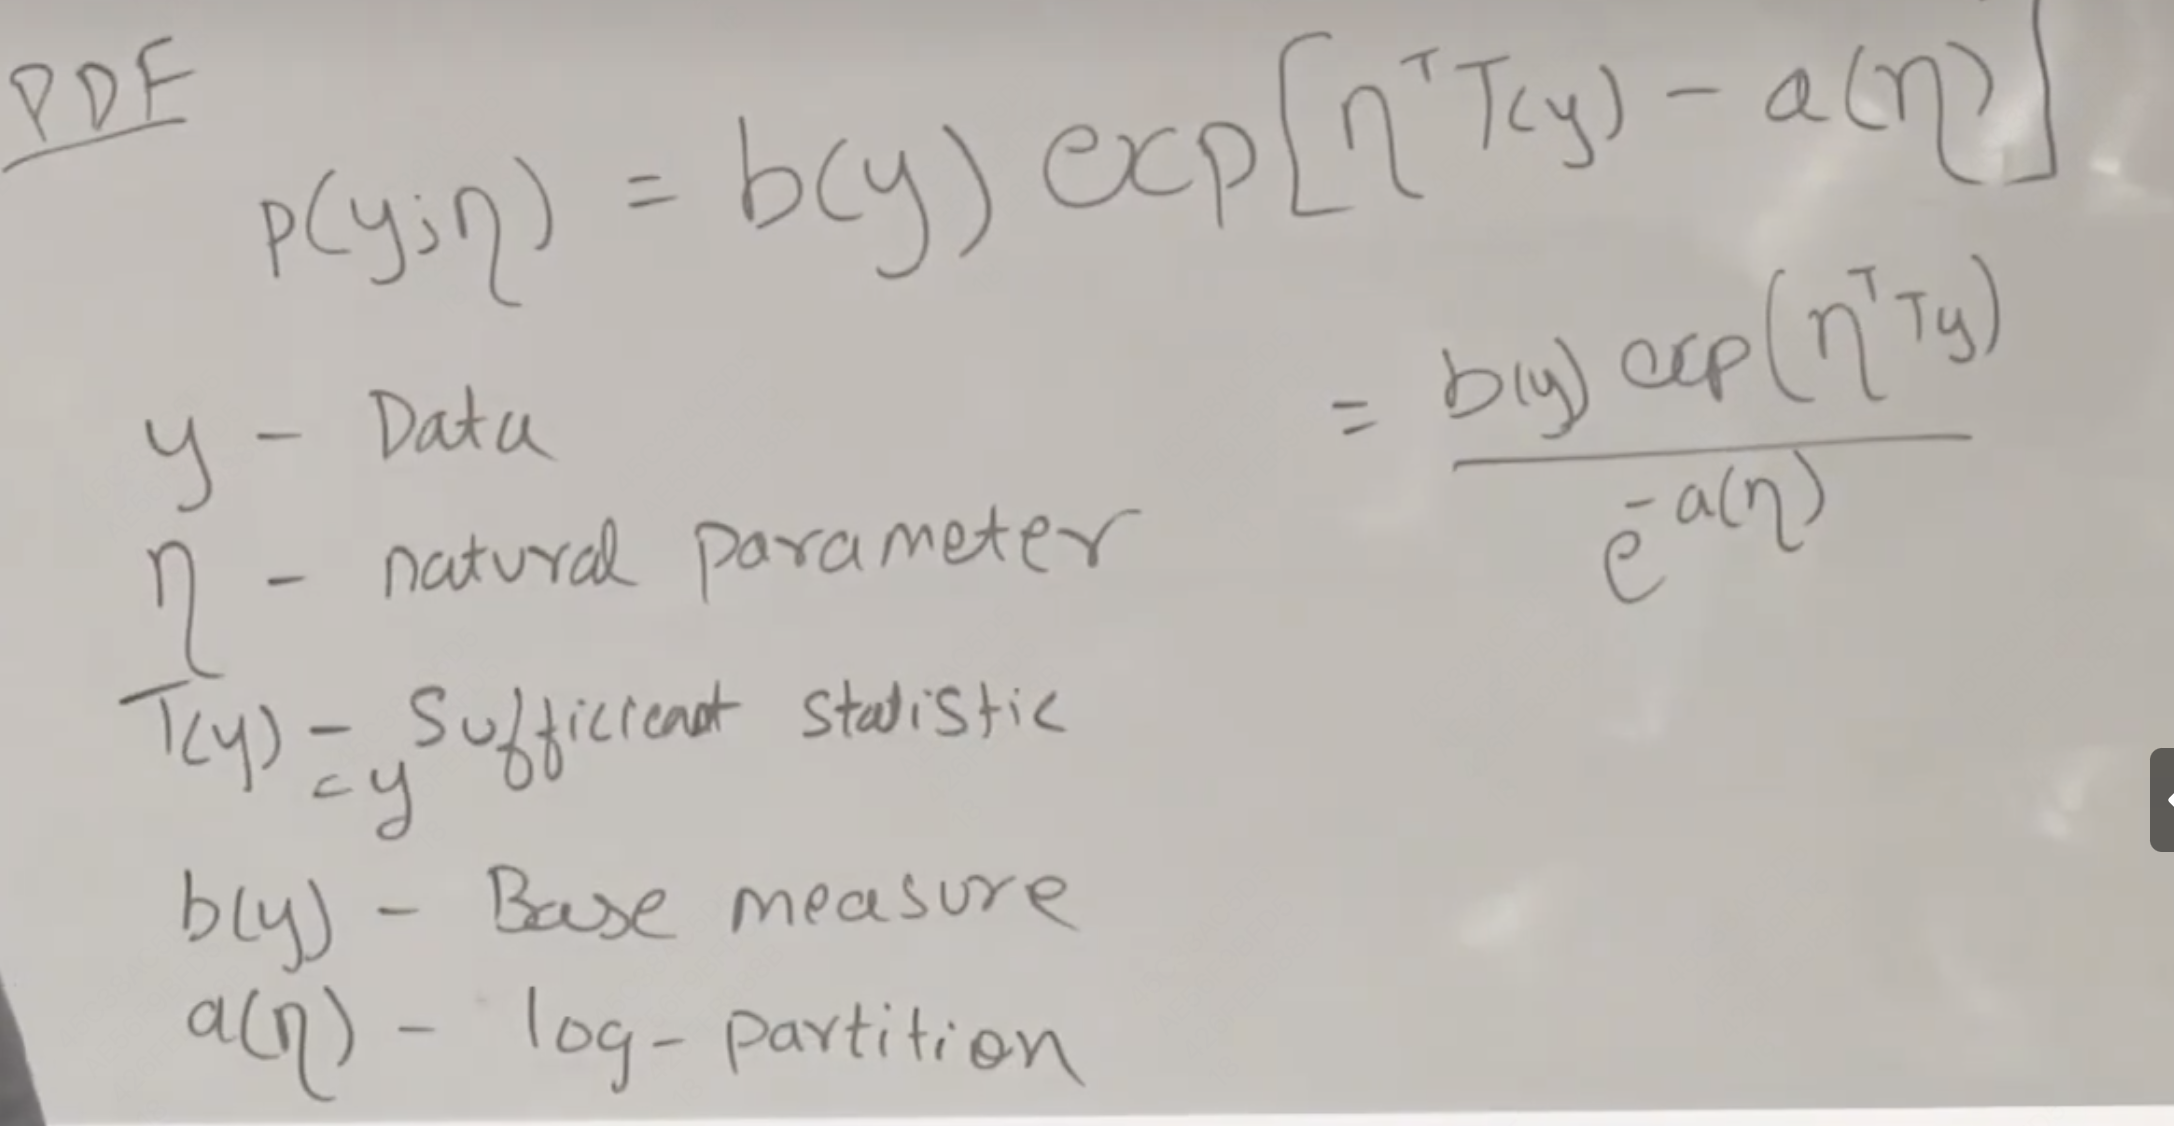 PDF
p(y;η) = b(y) exp[η^T T(y) - a(η)]
= b(y) exp(η^T Ty) / e^-a(η)
y - Data
η - natural parameter
T(y) - Sufficient statistic
= y
b(y) - Base measure
a(η) - log-partition